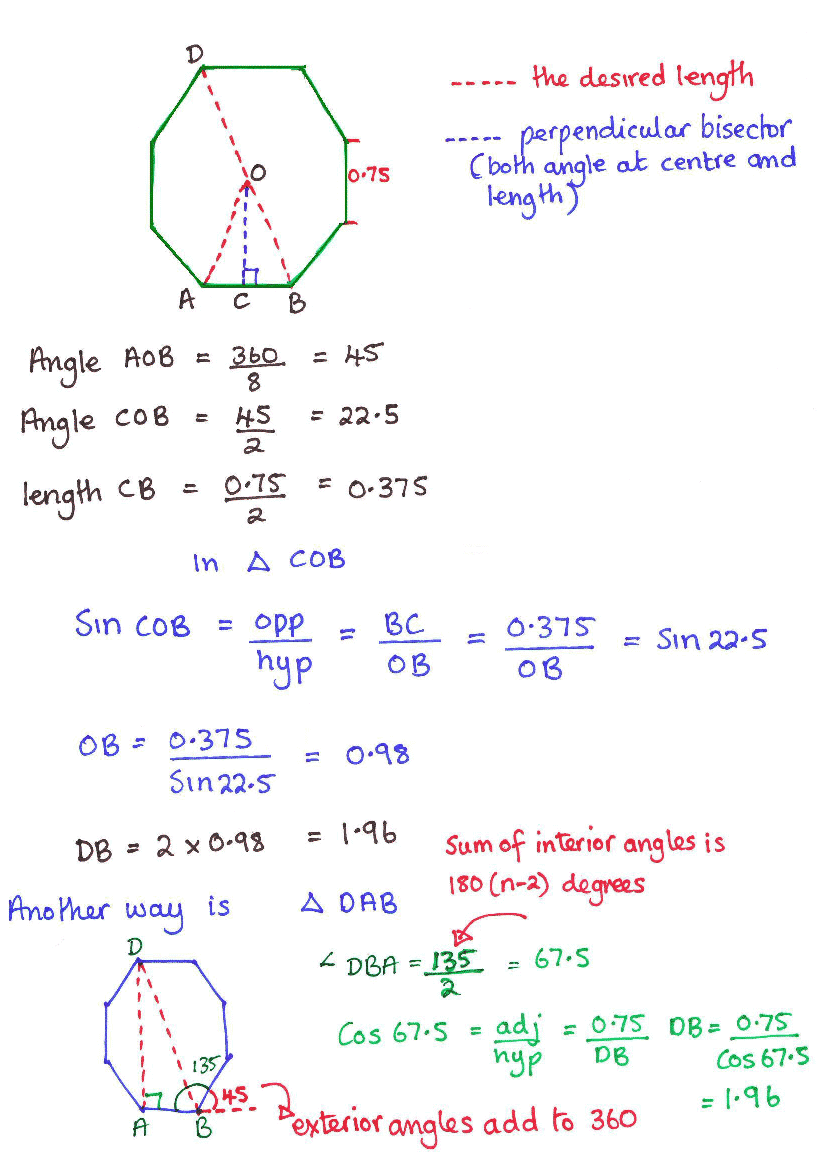 D
----- the desired length
----- perpendicular bisector
(both angle at centre and
length)
O
0.75
A C B
Angle AOB = 360/8 = 45
Angle COB = 45/2 = 22.5
length CB = 0.75/2 = 0.375
In △ COB
Sin COB = opp/hyp = BC/OB = 0.375/OB = Sin 22.5
OB = 0.375/Sin 22.5 = 0.98
DB = 2 x 0.98 = 1.96
Sum of interior angles is
180 (n-2) degrees
Another way is △ DAB
D
∠ DBA = 135/2 = 67.5
Cos 67.5 = adj/hyp = 0.75/DB DB = 0.75/Cos 67.5
= 1.96
135
45
A B
exterior angles add to 360